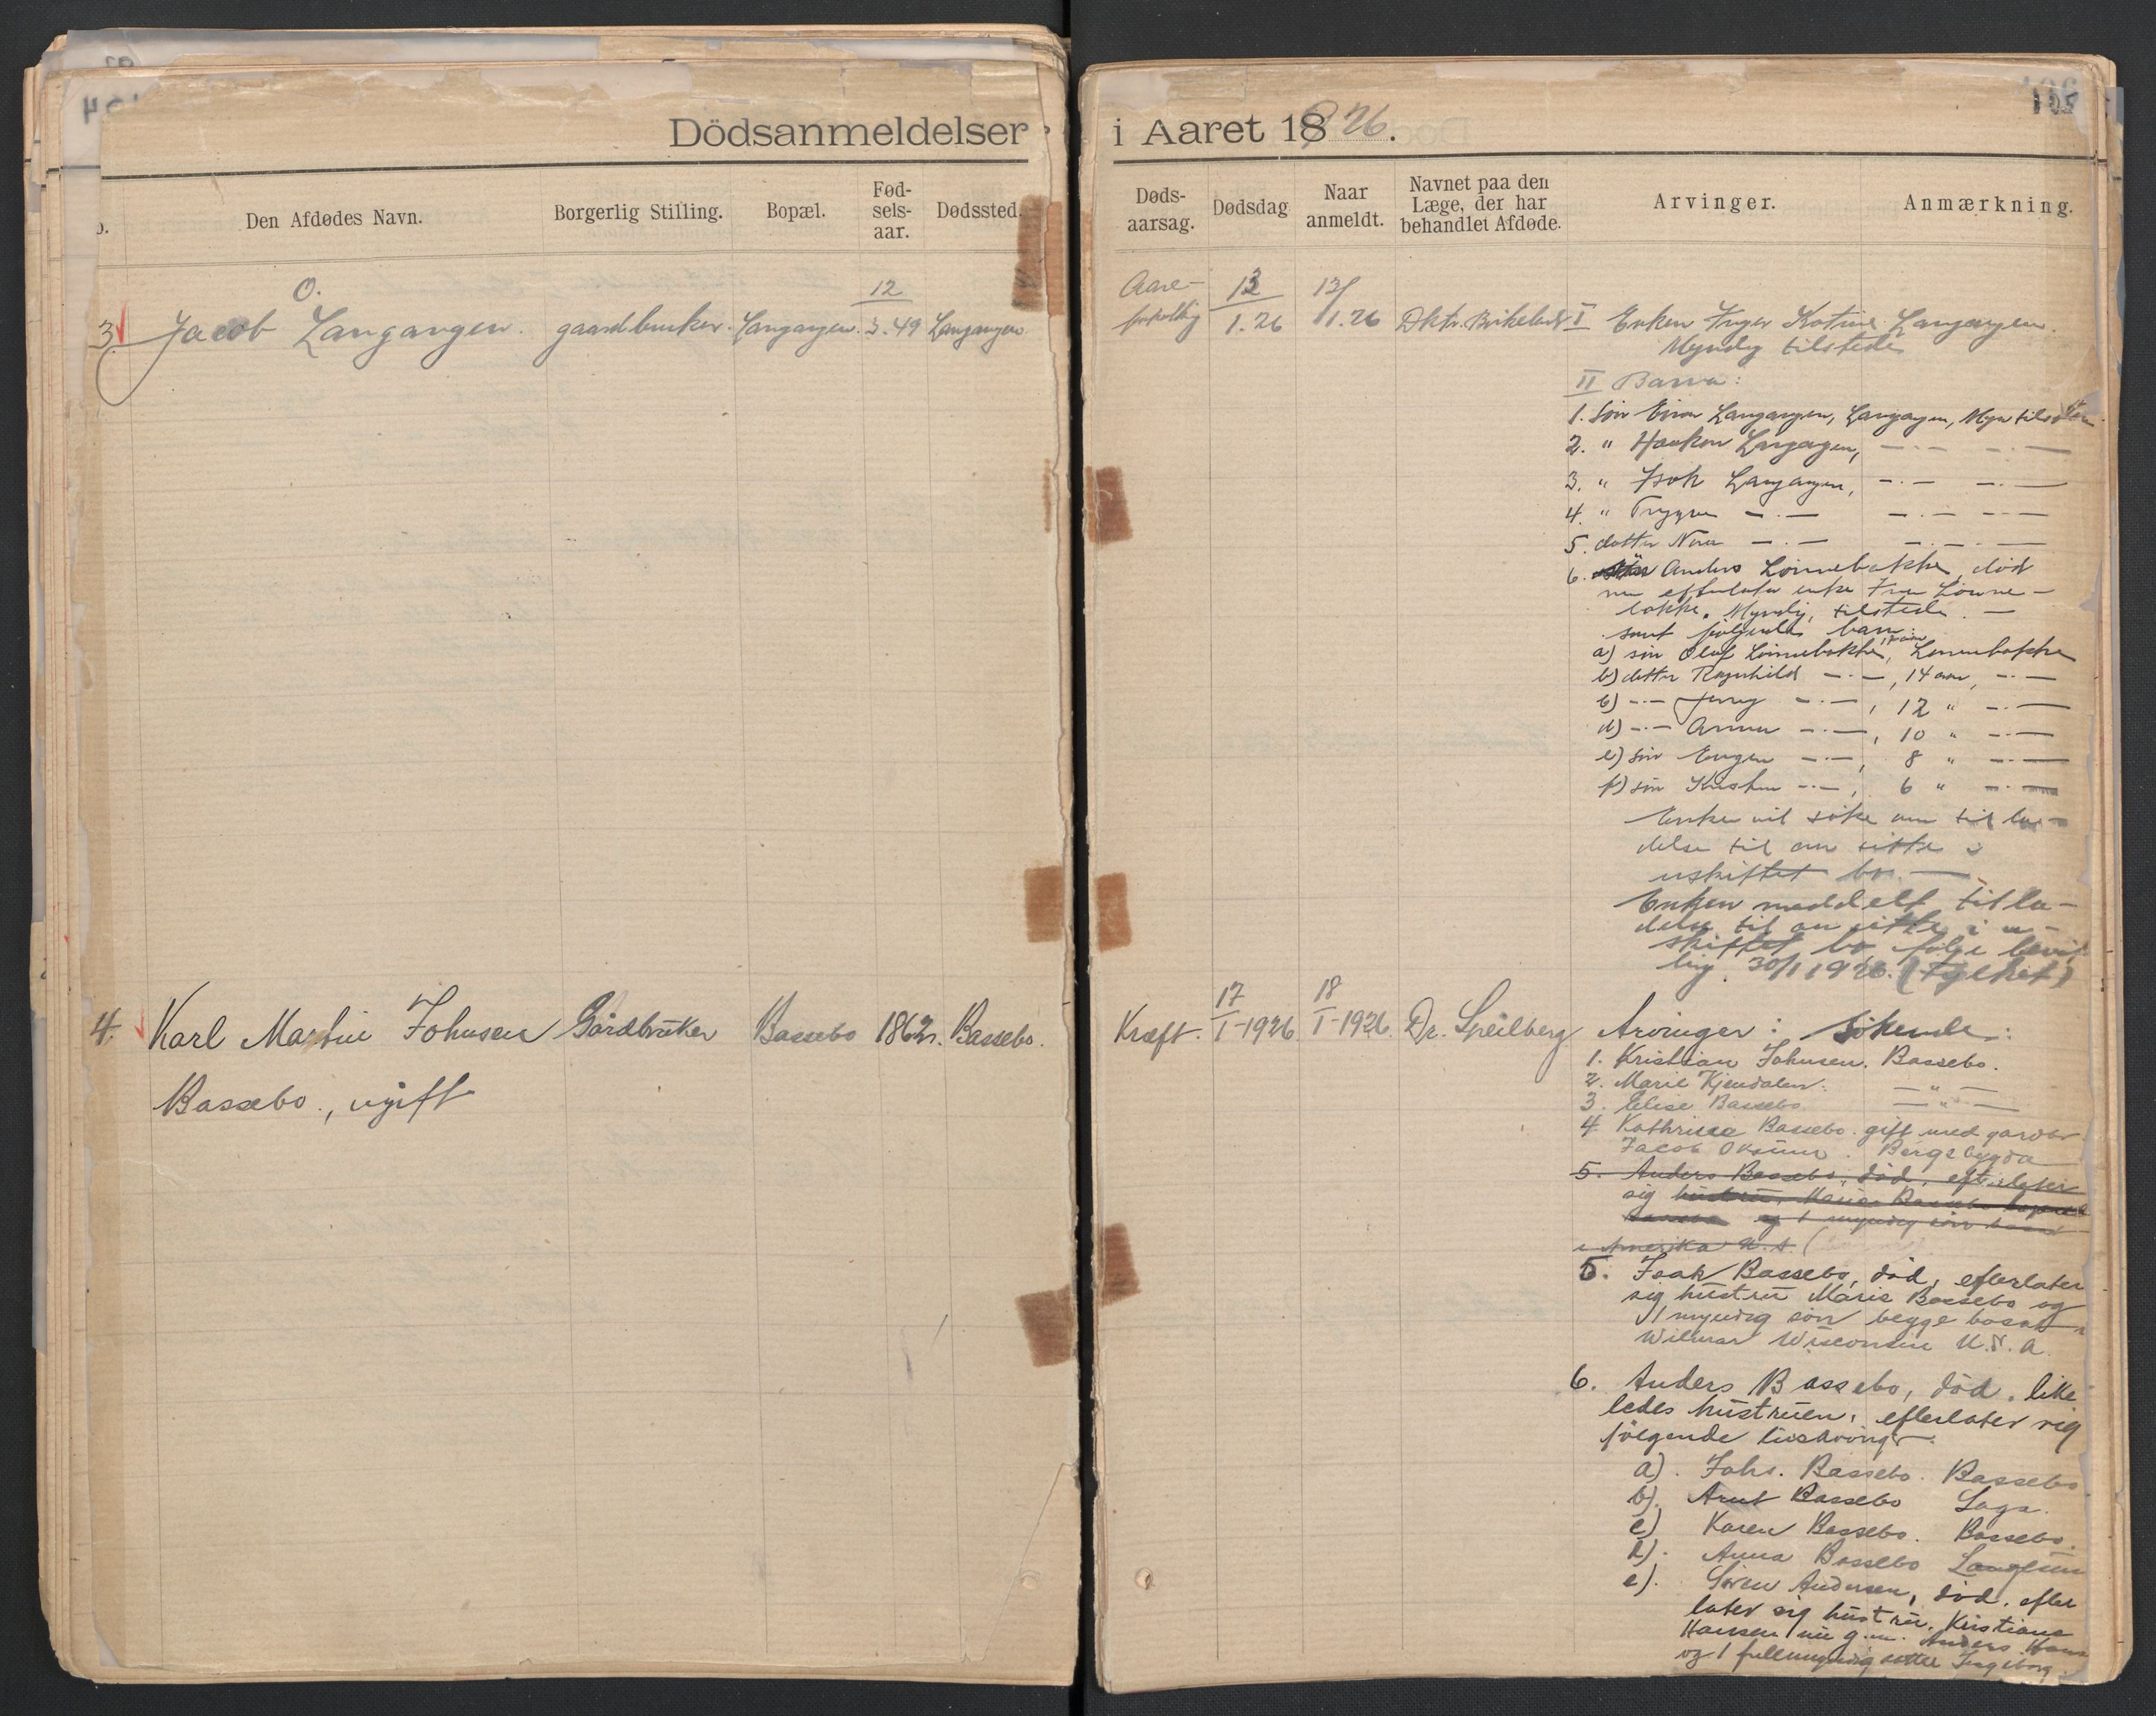 Dödsanmeldelser i Aaret 1926.
Den Afdødes Navn. Borgerlig Stilling. Bopæl. Fød-
sels-
aar. Dødssted.
Døds-
aarsag. Dødsdag Naar
anmeldt. Navnet paa den
Læge, der har
behandlet Afdøde. Arvinger. Anmærkning.
105
3 Jacob O. Langangen. gaardbruker. Langangen. 12/3.49 Langangen
13/1.26 13/1.26 Dktr.
I Enken Inger Katrine Langangen.
Myndig tilstede
II Barn:
1. Sön Einar Langangen, Langangen, Myn tilstede
2. " Haakon Langangen, —·— —·—
3. " Isak Langangen, —·— —·—
4. " Trygve —·— —·— —·—
5. datter Nora —·— —·— —·—
6. Anders Lönnebakke, död
men efterlater enke Fru Lönne-
bakke. Myndig, tilstede. —
samt følgende barn:
a) sön Olaf Lönnebakke, Lönnebakke
b) datter Ragnhild —·—, 14 aar, —·—
c) —·— Jenny —·—, 12 " —·—
d) —·— Anna —·—, 10 " —·—
e) sön Eugen —·—, 8 " —·—
f) sön Kristen —·—, 6 " —·—
Enken vil söke om tilla-
delse til aa sitte i
uskiftet bo. —
Enken meddelt tilla-
delse til aa sitte i u-
skiftet bo følge bevil-
ling 30/1 1926. (Fylket)
4. Karl Martin Johnsen Gårdbruker Bassebo 1862. Bassebo.
Bassebo., ugift
Kræft. 17/I-1926 18/I-1926 Dr. Speilberg
Arvinger: Søkende:
1. Kristian Johnsen. Bassebo.
2. Marie Kjendalen. —"—
3. Elise Bassebo —"—
4 Kathrine Bassebo. gift med gardbr.
Jacob Oksum. Bergsbygda
5. Anders Bassebo, död, efterlater
sig hustru, Maria Bassebo
og 1 myndig sön
i Amerika U.S.
5. Isak Bassebo, död, efterlater
sig hustru Marie Bassebo og
1 myndig sön begge bosat i
Wilmar Wisconsin U.S.A.
6. Anders Bassebo, död, like
ledes hustruen, efterlater sig
fölgende livsarvinger:
a). Johs. Bassebo. Bassebo
b). Arnt Bassebo Saga.
c) Karen Bassebo. Bassebo.
d). Anna Bassebo
e). Sören Andersen, död, efter
later sig hustru. Kristiane
Hansen nu g.m. Anders Hans
og 1 fullmyndig datter Ingeborg.